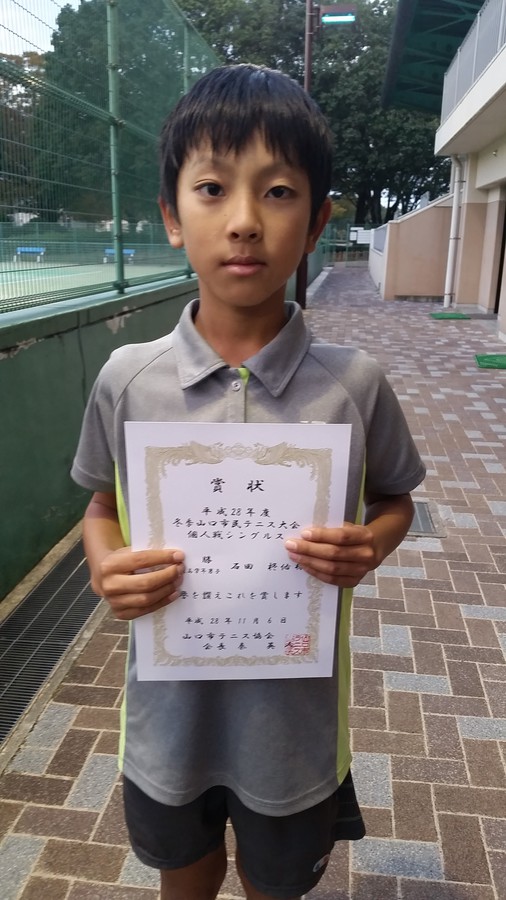 賞状
平成28年度
冬季山口市民テニス大会
個人戦シングルス
勝
学年男子 石田
誉を讃えこれを賞します
平成28年11月6日
山口市テニス協会
会長